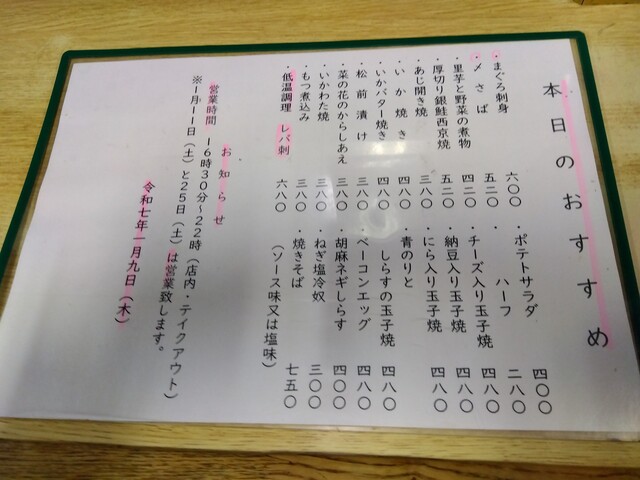 本日のおすすめ
・まぐろ刺身 六〇〇
・〆さば 五二〇
・里芋と野菜の煮物 四二〇
・厚切り銀鮭西京焼 五二〇
・あじ開き焼 三八〇
・いか焼き 四八〇
・いかバター焼き 四八〇
・松前漬け 三八〇
・菜の花のからしあえ 三八〇
・いかわた焼 三八〇
・もつ煮込み 三八〇
・低温調理 レバ刺 六八〇
・ポテトサラダ 四〇〇
・ ハーフ 二八〇
・チーズ入り玉子焼 四八〇
・納豆入り玉子焼 四八〇
・にら入り玉子焼 四八〇
・青のりと
しらすの玉子焼 四八〇
・ベーコンエッグ 四八〇
・胡麻ネギしらす 四〇〇
・ねぎ塩冷奴 三〇〇
・焼きそば 七五〇
（ソース味又は塩味）
お知らせ
営業時間 16時30分～22時（店内・テイクアウト）
※1月11日（土）と25日（土）は営業致します。
令和七年一月九日（木）